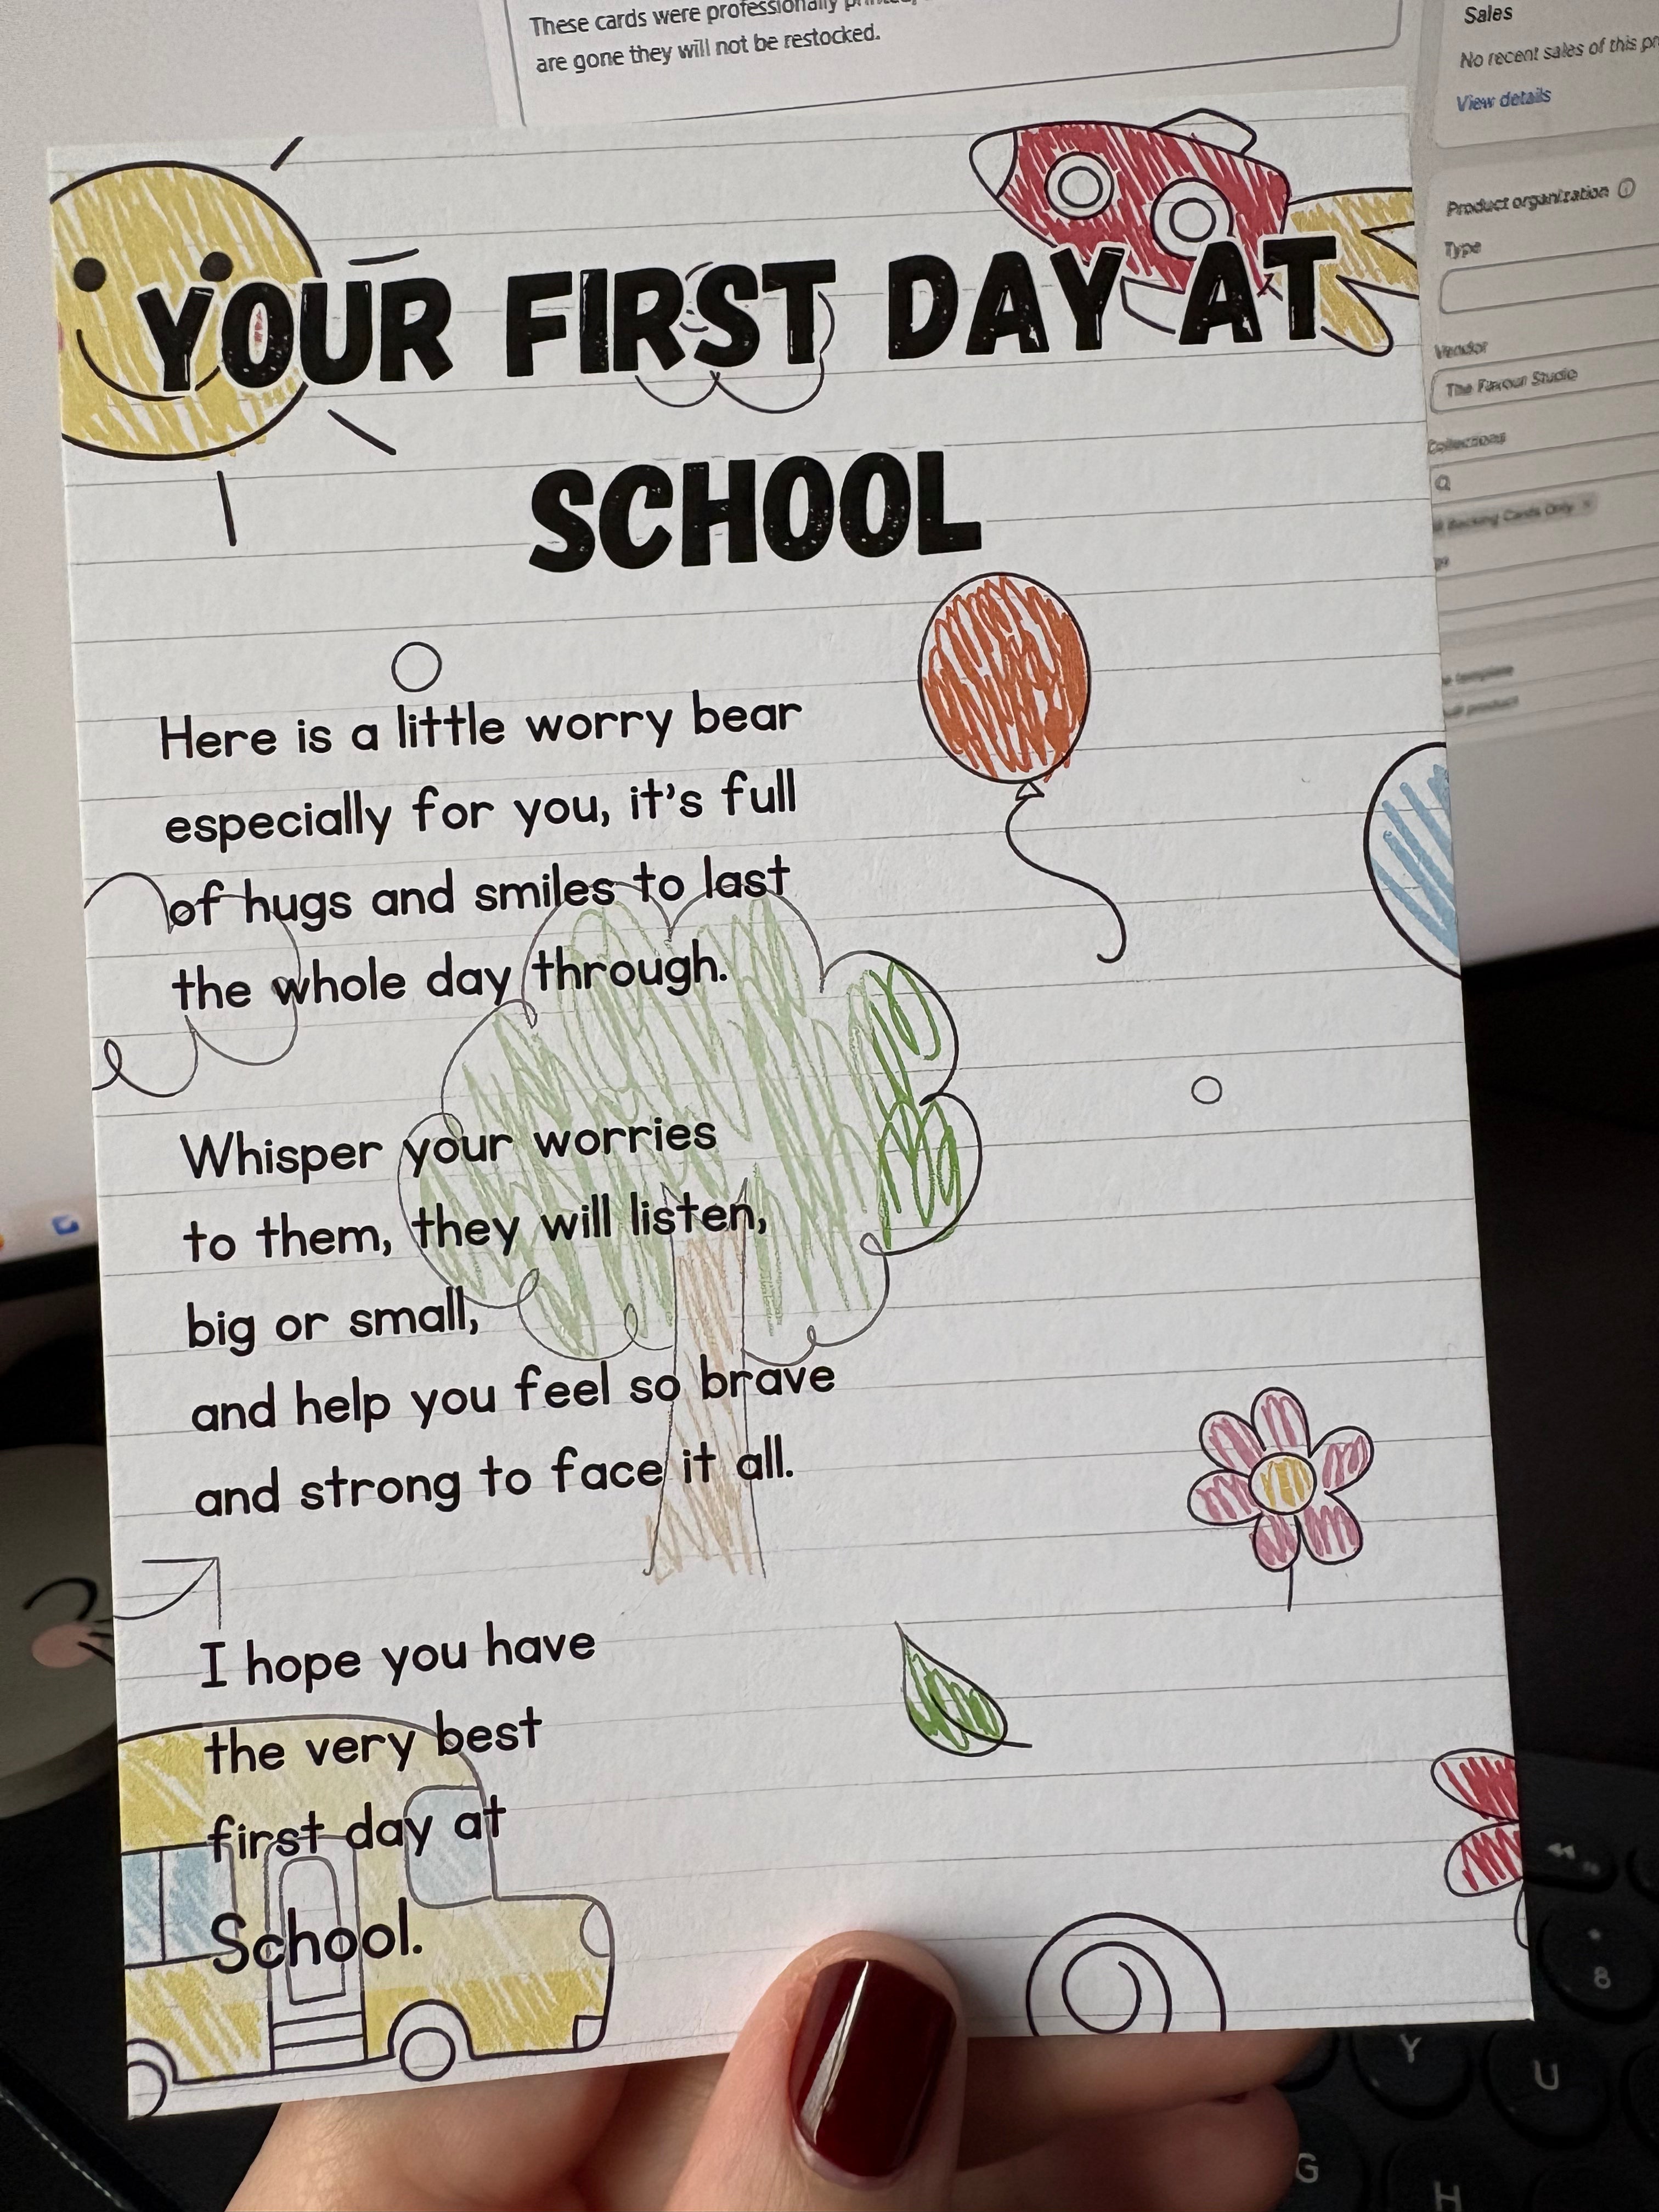 These cards were professionally
are gone they will not be restocked.
Sales
No recent sales of this
View details
Product organization
Type
Vendor
The Favour Studio
Collections
Backing Cards Only
template
product
YOUR FIRST DAY AT
SCHOOL
Here is a little worry bear
especially for you, it's full
of hugs and smiles to last
the whole day through.
Whisper your worries
to them, they will listen,
big or small,
and help you feel so brave
and strong to face it all.
I hope you have
the very best
first day at
School.
8
Y
U
G
H